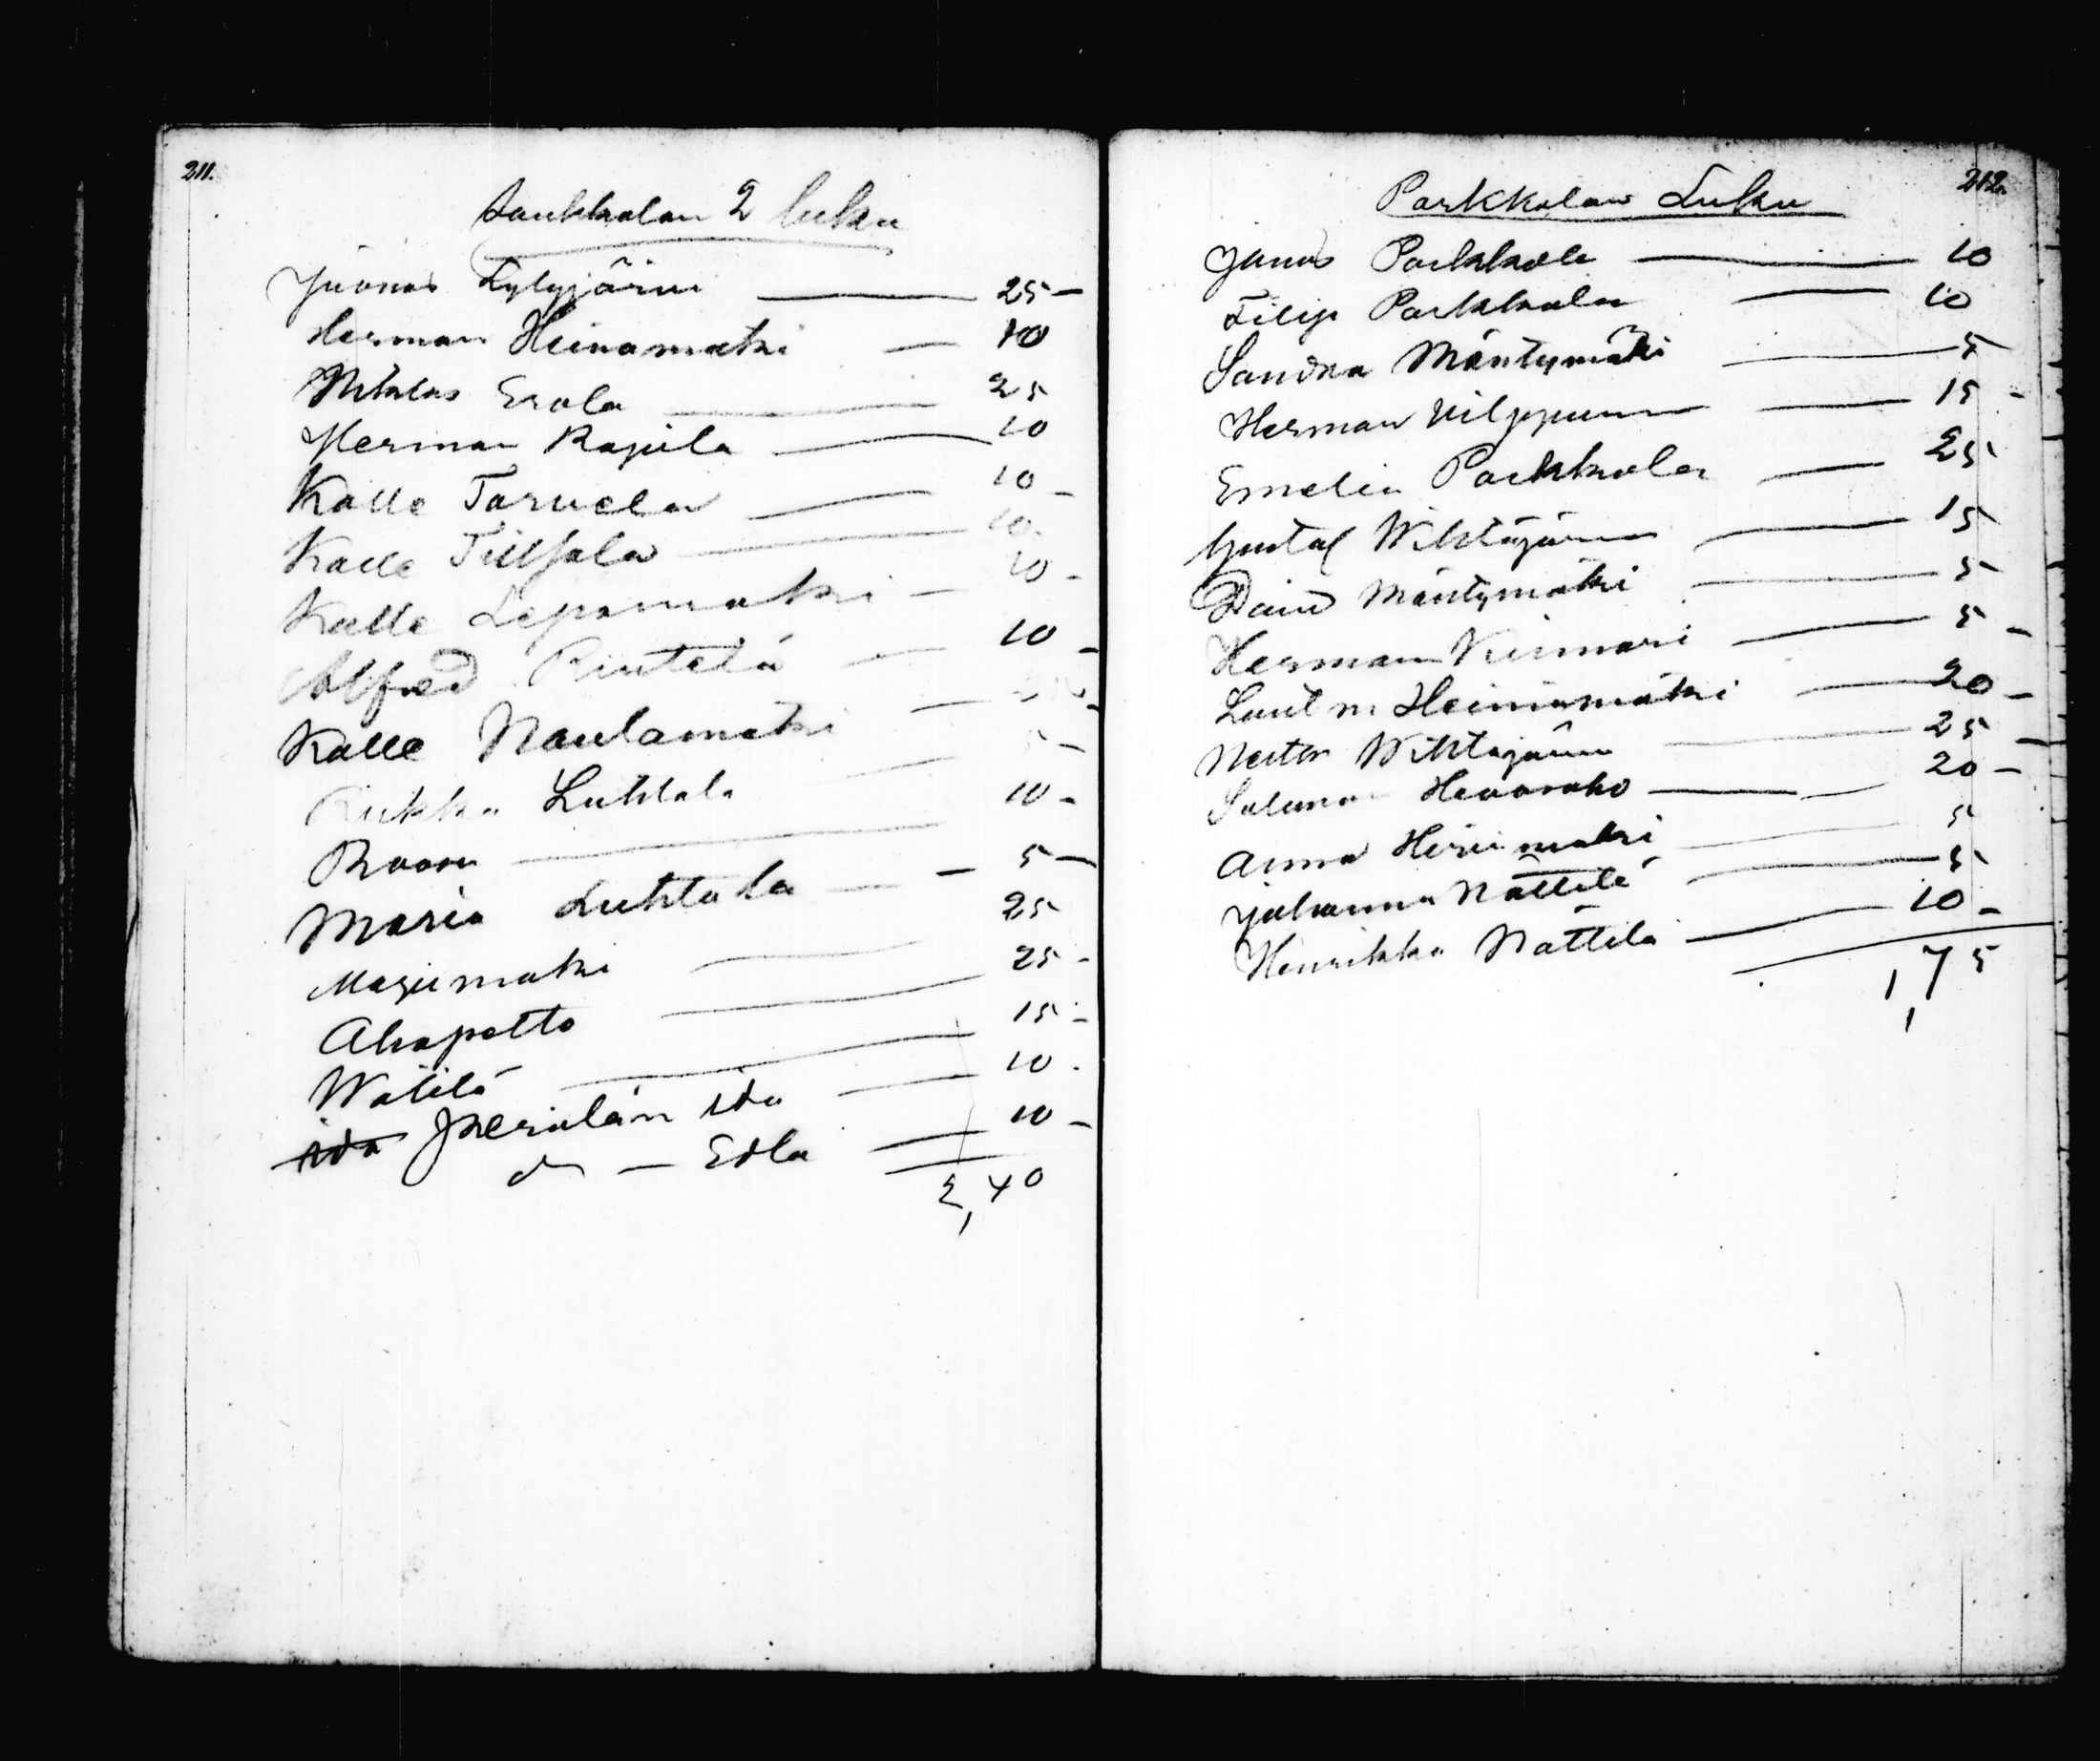 211.
Saukkolan 2 luku
Juonas Lylyjärvi — 25 —
Herman Heinamaki — 10
Niklas Erola — 25
Herman Rajula — 10
Kalle Tarvela — 10 —
Kalle Tilljala — 10.
Kalle Lepamaki — 10 -
Alfred Rintelä — 10 -
Kalle Naulamaki —
Luhtala — 5 —
— 10 -
Maria Luhtala — 5 —
Marjumaki — 25
Ahapelto — 25 -
Wälilä — 15 -
ida Jkerälän ida — 10 .
— Edla — 10 -
2,40
212.
Parkkolan Luku
Junas Parkkola — 10
Filip Parkkola — 10
Sandra Mäntymäki — 5
Herman Vilppunn — 15 -
Emelia Parkkola — 25
Gustaf Wihtajärvi — 15
David Mäntymäki — 5
Herman Kiimari — 5 -
Heiniamäki — 20 -
Nestor Wihtajärvi — 25 —
Heavaraho — 20 -
Anna Hirvimaki — 5
Juhanna Nättilä — 5
Henrikka Nättilä — 10 -
1,75